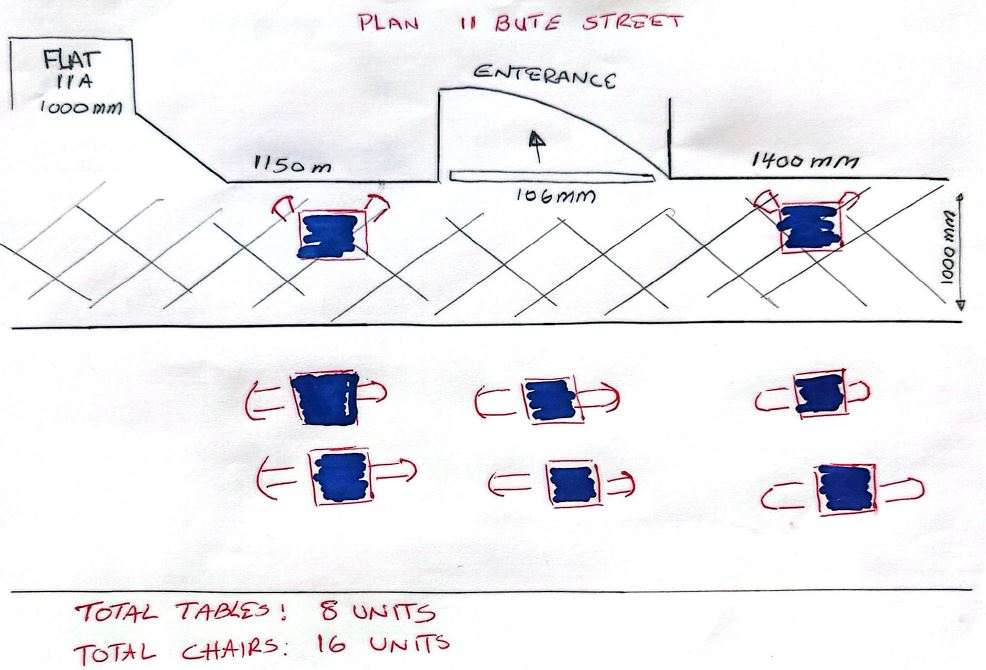 PLAN 11 BUTE STREET
FLAT
11A
1000mm
ENTERANCE
1150m
106mm
1400mm
1000mm
TOTAL TABLES: 8 UNITS
TOTAL CHAIRS: 16 UNITS